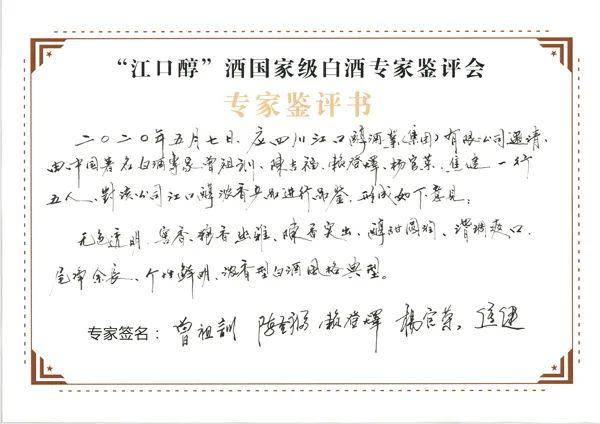 “江口醇”酒国家级白酒专家鉴评会
专家鉴评书
二〇二〇年五月七日，应四川江口醇酒业(集团)有限公司邀请，
由中国著名白酒专家曾祖训、陈吉福、赖登燡、杨官荣、焦健一行
五人，对该公司江口醇浓香产品进行品鉴，形成如下意见：
无色透明、窖香、粮香幽雅、陈香突出、醇甜圆润、谐调爽口、
尾净余长、个性鲜明、浓香型白酒风格典型。
专家签名：曾祖訓 陈吉福 赖登燡 楊官荣